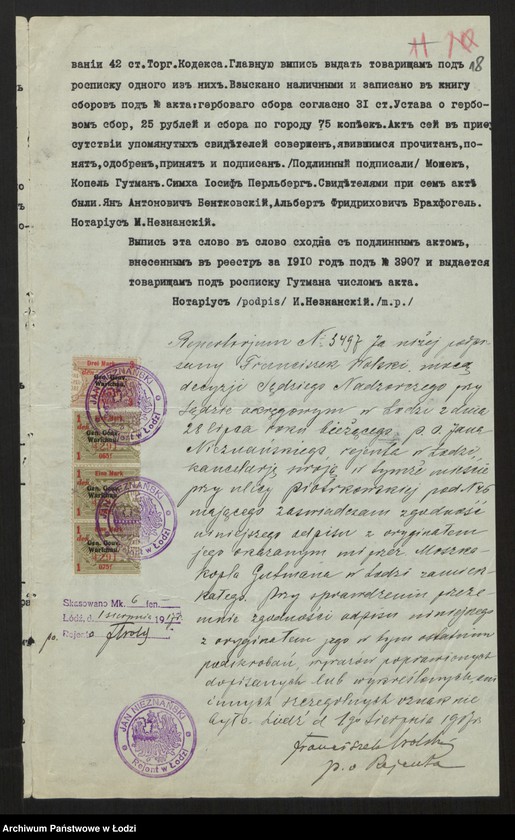 11 10 18
ваніи 42 ст.Торг.Кодекса.Главную выпись выдать товарищамъ подъ
росписку одного изъ нихъ.Взыскано наличными и записано въ книгу
сборовъ подъ № акта:гербоваго сбора согласно 31 ст.Устава о гербо-
вомъ сбор, 25 рублей и сбора по городу 75 копѣекъ.Актъ сей въ при-
сутствіи упомянутыхъ свидѣтелей совершенъ,явившимся прочитанъ,по-
нятъ,одобренъ,принятъ и подписанъ./Подлинный подписали/ Мошекъ,
Копель Гутманъ.Симха Іосифъ Перльбергъ.Свидѣтелями при семъ актѣ
были.Янъ Антоновичъ Бентковскій,Альбертъ Фридриховичъ Брахфогель.
Нотаріусъ И.Незнанскій.
Выпись эта слово въ слово сходна съ подлиннымъ актомъ,
внесеннымъ въ реестръ за 1910 годъ подъ № 3907 и выдается
товарищамъ подъ росписку Гутмана числомъ акта.
Нотаріусъ /podpis/ И.Незнанскій./m.p./
Repertorjum № 5497 Ja niżej podpi-
sany Franciszek Wolski, mocą
decyzji Sędziego Nadzorczego przy
Sądzie okręgowym w Łodzi z dnia
lipca roku bieżącego, p.o. Jana
Nieznańskiego, rejenta w Łodzi,
kancelarję swoją w tymże mieście
przy ulicy Piotrkowskiej pod №
mającego zaświadczam zgodność
niniejszego odpisu z oryginałem
jego okazanym mi przez Moszka-
Kopla Gutmana w Łodzi zamiesz-
kałego. Przy sprawdzeniu przeze-
mnie zgodności odpisu niniejszego
z oryginałem jego w tym ostatnim
podskrobań, wyrazów poprawionych
dopisanych lub wykreślonych, ani
innych szczególnych oznak nie
było. Łódź d. 1go Sierpnia 1917 r.
Franciszek Wolski
p. o Rejenta
Drei Mark 3
Gen. Gouv.
Warschau.
JAN NIEZNAŃSKI
Rejent w Łodzi
Gen. Gouv.
Warschau.
Eine Mark
Gen. Gouv.
Warschau.
JAN NIEZNAŃSKI
Rejent w Łodzi
Eine Mark
Gen. Gouv.
Warschau.
Skasowano Mk. 6 fen.
Łódź, d. 1 sierpnia 1917 r.
po. Rejenta
JAN NIEZNAŃSKI
Rejent w Łodzi
Archiwum Państwowe w Łodzi